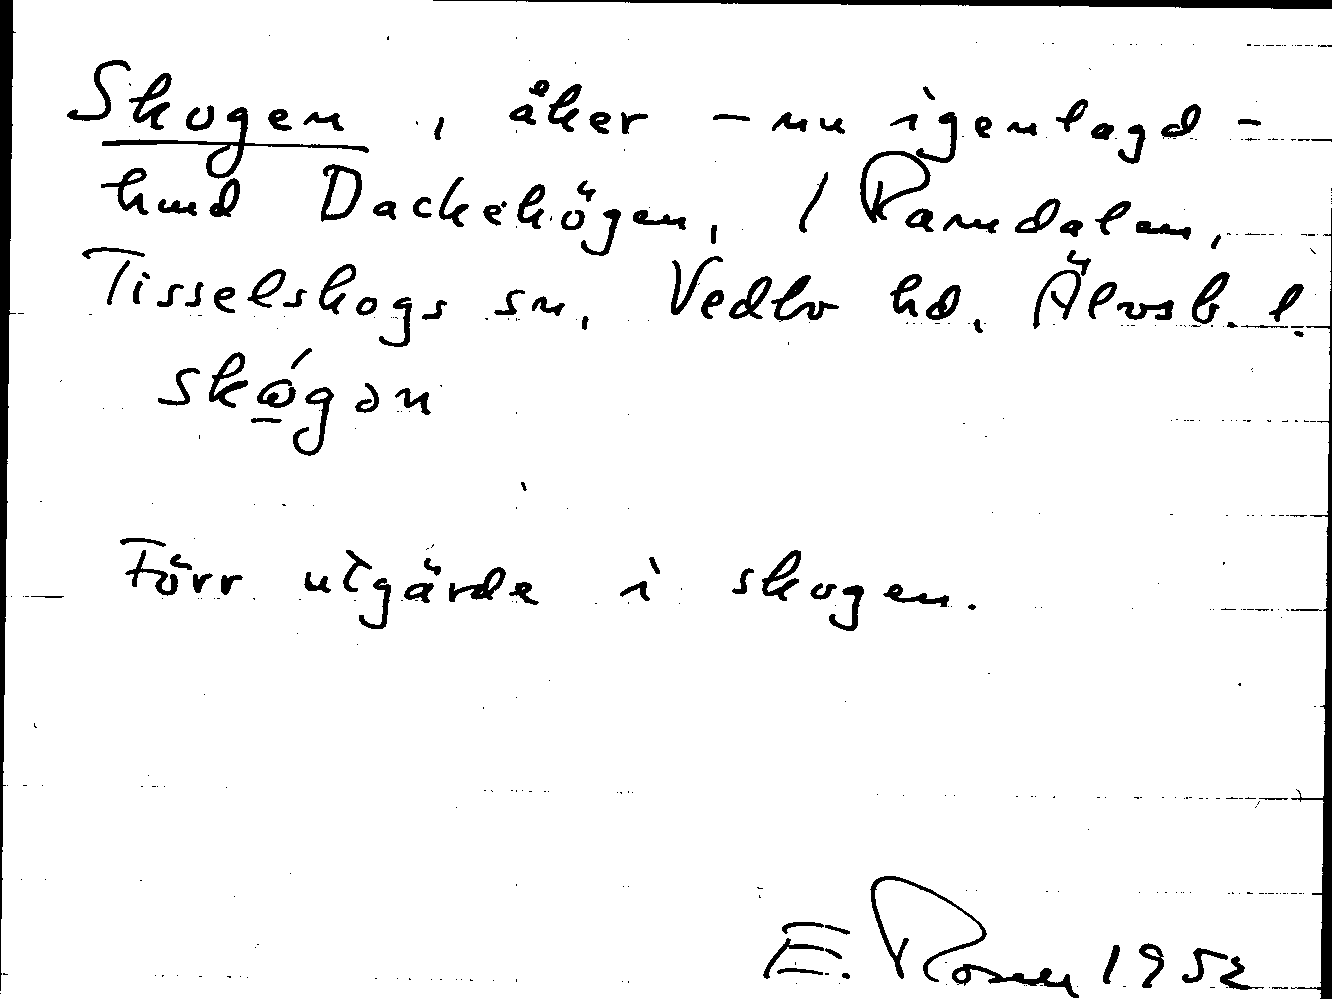 Skogen, åker - nu igenlagd -
hmd Dackehögen, / Ramdalen,
Tisselskogs sn, Vedbo hd, Älvsb. l.
skógən
Förr utgärde i skogen.
E. Rosell 1952